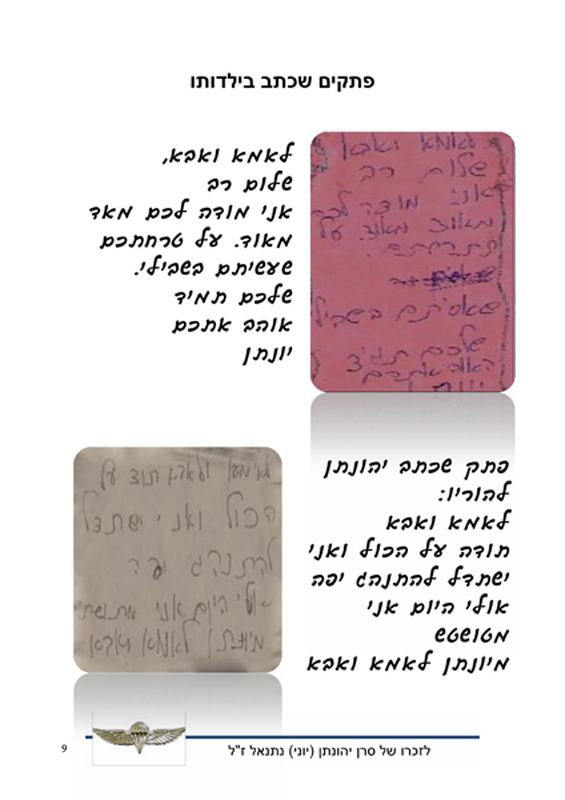 פתקים שכתב בילדותו
לאמא ואבא,
שלום רב
אני מודה לכם מאד
מאוד. על טרחתכם
שעשיתם בשבילי.
שלכם תמיד
אוהב אתכם
יונתן
לאמא ואבא
שלום רב
אני מודה לכם
מאוד מאוד על
שלכם
פתק שכתב יהונתן
להוריו:
לאמא ואבא
תודה על הכול ואני
ישתדל להתנהג יפה
אולי היום אני
מטושטש
מיונתן לאמא ואבא
ולאבא על
הכול ואני ישתדל
להתנהג יפה
אולי היום אני
מיונתן לאמא ואבא
לזכרו של סרן יהונתן (יוני) נתנאל ז"ל
9